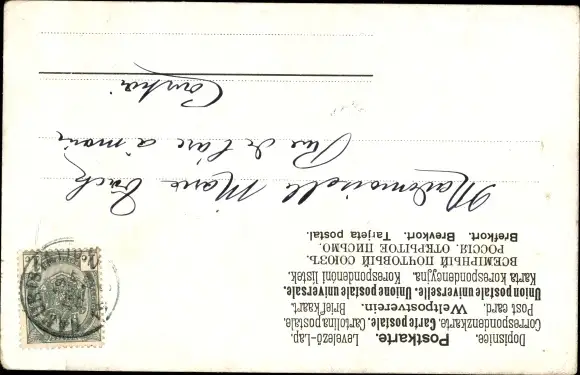 Dopisnice. Postkarte. Levelező-Lap.
Correspondenzkarte. Carte postale. Cartolina postale.
Post card. Weltpostverein. Brief kaart.
Union postale universelle. Unione postale universale.
Karta korespondencyjna. Korespondenční listek.
ВСЕМІРНЫЙ ПОЧТОВЫЙ СОЮЗЪ.
РОССІЯ. ОТКРЫТОЕ ПИСЬМО.
Brefkort. Brevkort. Tarjeta postal.
Mademoiselle Marie
Rue de l'arc à main